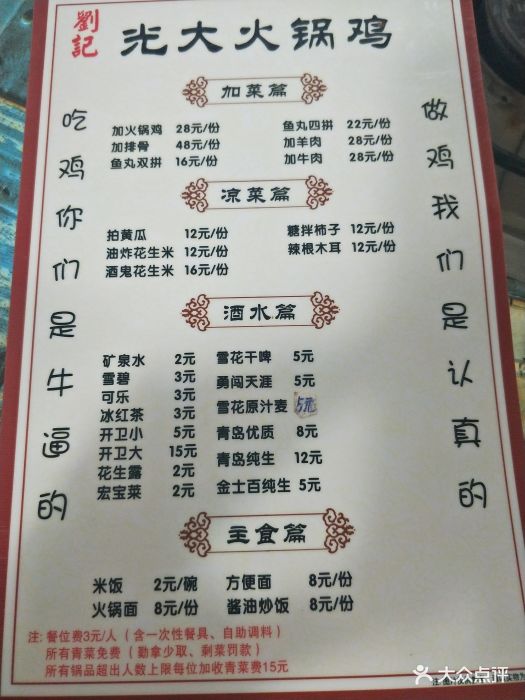 劉記
光大火锅鸡
吃鸡你们是牛逼的
做鸡我们是认真的
加菜篇
加火锅鸡 28元/份 鱼丸四拼 22元/份
加排骨 48元/份 加羊肉 28元/份
鱼丸双拼 16元/份 加牛肉 28元/份
凉菜篇
拍黄瓜 12元/份 糖拌柿子 12元/份
油炸花生米 12元/份 辣根木耳 12元/份
酒鬼花生米 16元/份
酒水篇
矿泉水 2元 雪花干啤 5元
雪碧 3元 勇闯天涯 5元
可乐 3元 雪花原汁麦 5元
冰红茶 3元 青岛优质 8元
开卫小 5元 青岛纯生 12元
开卫大 15元 金士百纯生 5元
花生露 2元
宏宝莱 2元
主食篇
米饭 2元/碗 方便面 8元/份
火锅面 8元/份 酱油炒饭 8元/份
注: 餐位费3元/人（含一次性餐具、自助调料）
所有青菜免费（勤拿少取、剩菜罚款）
所有锅品超出人数上限每位加收青菜费15元
大众点评